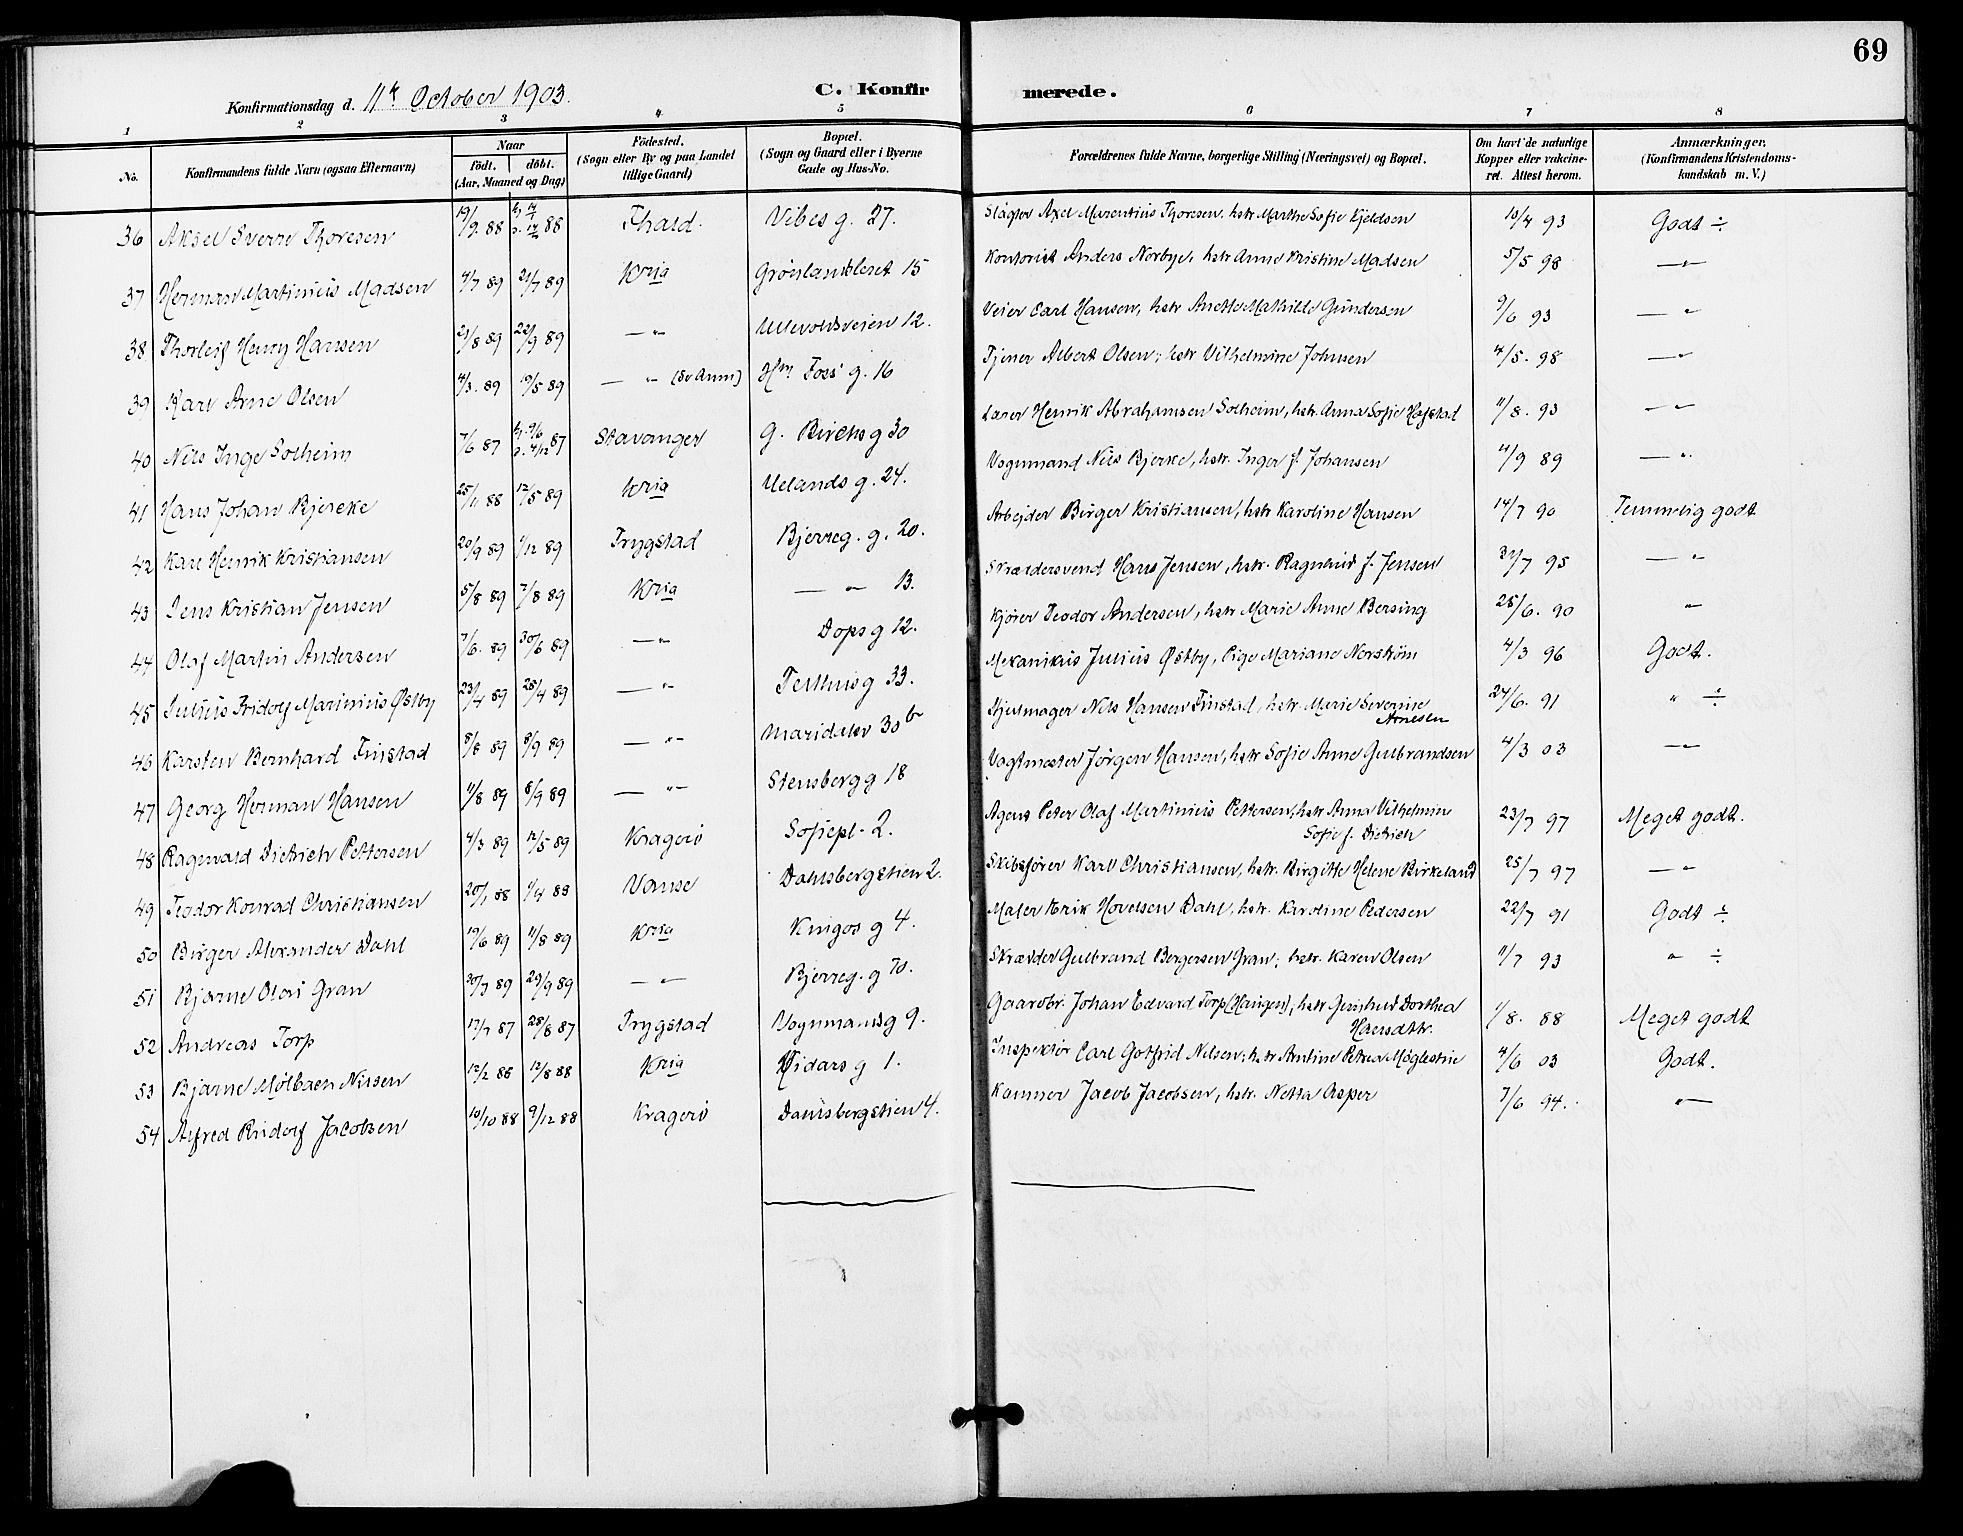 69
Konfirmationsdag d. 11te October 1903. C. Konfir merede.
1 2 3 4 5 6 7 8
No. Konfirmandens fulde Navn (ogsaa Efternavn) Naar födt. döbt. (Aar, Maaned og Dag) Födested. (Sogn eller By og paa Landet tillige Gaard) Bopæl. (Sogn og Gaard eller i Byerne Gade og Hus-No. Forældrenes fulde Navne, borgerlige Stilling (Næringsvei) og Bopæl. Om havt de naturlige Kopper eller vakcineret. Attest herom. Anmærkninger. (Konfirmandens Kristendomskundskab m. V.)
36 Aksel Sverre Thoresen 19/9 88 88 Fhald. Vibes g. 27. Slagter Axel Marentius Thoresen, hstr Marthe Sofie Kjeldsen 10/4 93 Godt ÷
37 Herman Martinius Madsen 4/7 89 21/7 89 Kria Grønlandsleret 15 Kontorist Anders Norbye, hstr Anne Kristine Madsen 5/5 98 —"—
38 Thorleif Henry Hansen 21/8 89 22/9 89 —"— Ullevoldsveien 12. Veier Carl Hansen, hstr Anette Mathilde Gundersen 9/6 93 — "
39 Karl Arne Olsen 4/3. 89 19/5 89 — "— (Sv Anm) Hm Foss' g. 16 Tjener Albert Olsen; hstr Vilhelmine Johnsen 4/5. 98 —"—
40 Nils Inge Solheim 7/6 87 9/6 4/12 87 Stavanger G. Birchs g 30 Læser Henrik Abrahamsen Solheim, hstr. Anna Sofie Hafstad 11/8. 93 —"—
41 Hans Johan Bjercke 25/11 88 12/5 89 Kria Uelands g. 24. Vognmand Nils Bjerke, hstr. Inger f. Johansen 11/9 89 —"—
42 Karl Henrik Kristiansen 20/9 89 1/12 89 Trygstad Bjerreg. g. 20. Arbejder Birger Kristiansen, hstr Karoline Hansen 14/7 90 Temmelig godt
43 Jens Kristian Jensen 5/8 89 7/8 89 Kria — " — 13. Skræddersvend Hans Jensen, hstr. Ragnhild f. Jensen 31/7 95 — "
44 Olaf Martin Andersen 7/6. 89 30/6 89 —"— Dops g 12. Kjører Teodor Andersen, hstr Marie Anne Bersing 28/6. 90 "
45 Julius Fridolf Marinius Østby 23/4 89 28/4 89 — "— Telthus g 33. Mekanikus Julius Østby, Pige Mariane Norström 4/3 96 Godt.
46 Karsten Bernhard Finstad 8/8 89 8/9 89 — "— Maridalsv 30b Hjulmager Nils Hansen Finstad, hstr. Marie Severine Arnesen 24/6. 91 " ÷
47 Georg Herman Hansen 11/8 89 8/9 89 — "— Stensberg g 18 Vagtmester Jørgen Hansen, hstr Sofie Anne Gulbrandsen 4/3 03 —"—
48 Ragnvald Dietrich Pettersen 4/3 89 12/5 89 Kragerö Sofiepl. 2. Agent Peter Olaf Martinius Pettersen, hstr Anna Vilhelmine Sofie f. Dietrich 23/7 97 Meget godt.
49 Teodor Konrad Christiansen 20/1 88 1/4 88 Vanse Dahlsbergstien 2. Skibsfører Karl Christiansen, hstr. Birgitte Helene Birkeland 25/7 97 — "
50 Birger Alexander Dahl 19/6 89 11/8 89 Kria Kingos g 4. Maler Anrik Hovelsen Dahl, hstr. Karoline Pedersen 22/7 91 Godt ÷
51 Bjarne Olai Gran 30/7 89 29/9 89 — "— Bjerreg. g 70. Skrædder Gulbrand Bergersen Gran; hstr. Karen Olsen 11/7 93 " ÷
52 Andreas Torp 17/7 87 28/8 87 Trygstad Vognmandsg 9. Gaardbr. Johan Edvard Torp (Haugen), hstr Gunhild Dorthea Hansdttr. 1/8. 88 Meget godt
53 Bjarne Mølbach Nilsen 12/2 88 12/8 88 Kria Nidars g 1. Inspektør Carl Gotfrid Nilsen; hstr Antine Petrea Møglestue 4/6 03 Godt.
54 Alfred Rudolf Jacobsen 10/10 88 9/12 88 Kragerö Dahlsbergstien 4. Kanner Jacob Jacobsen, hstr. Netta Asper 7/6 94. "—